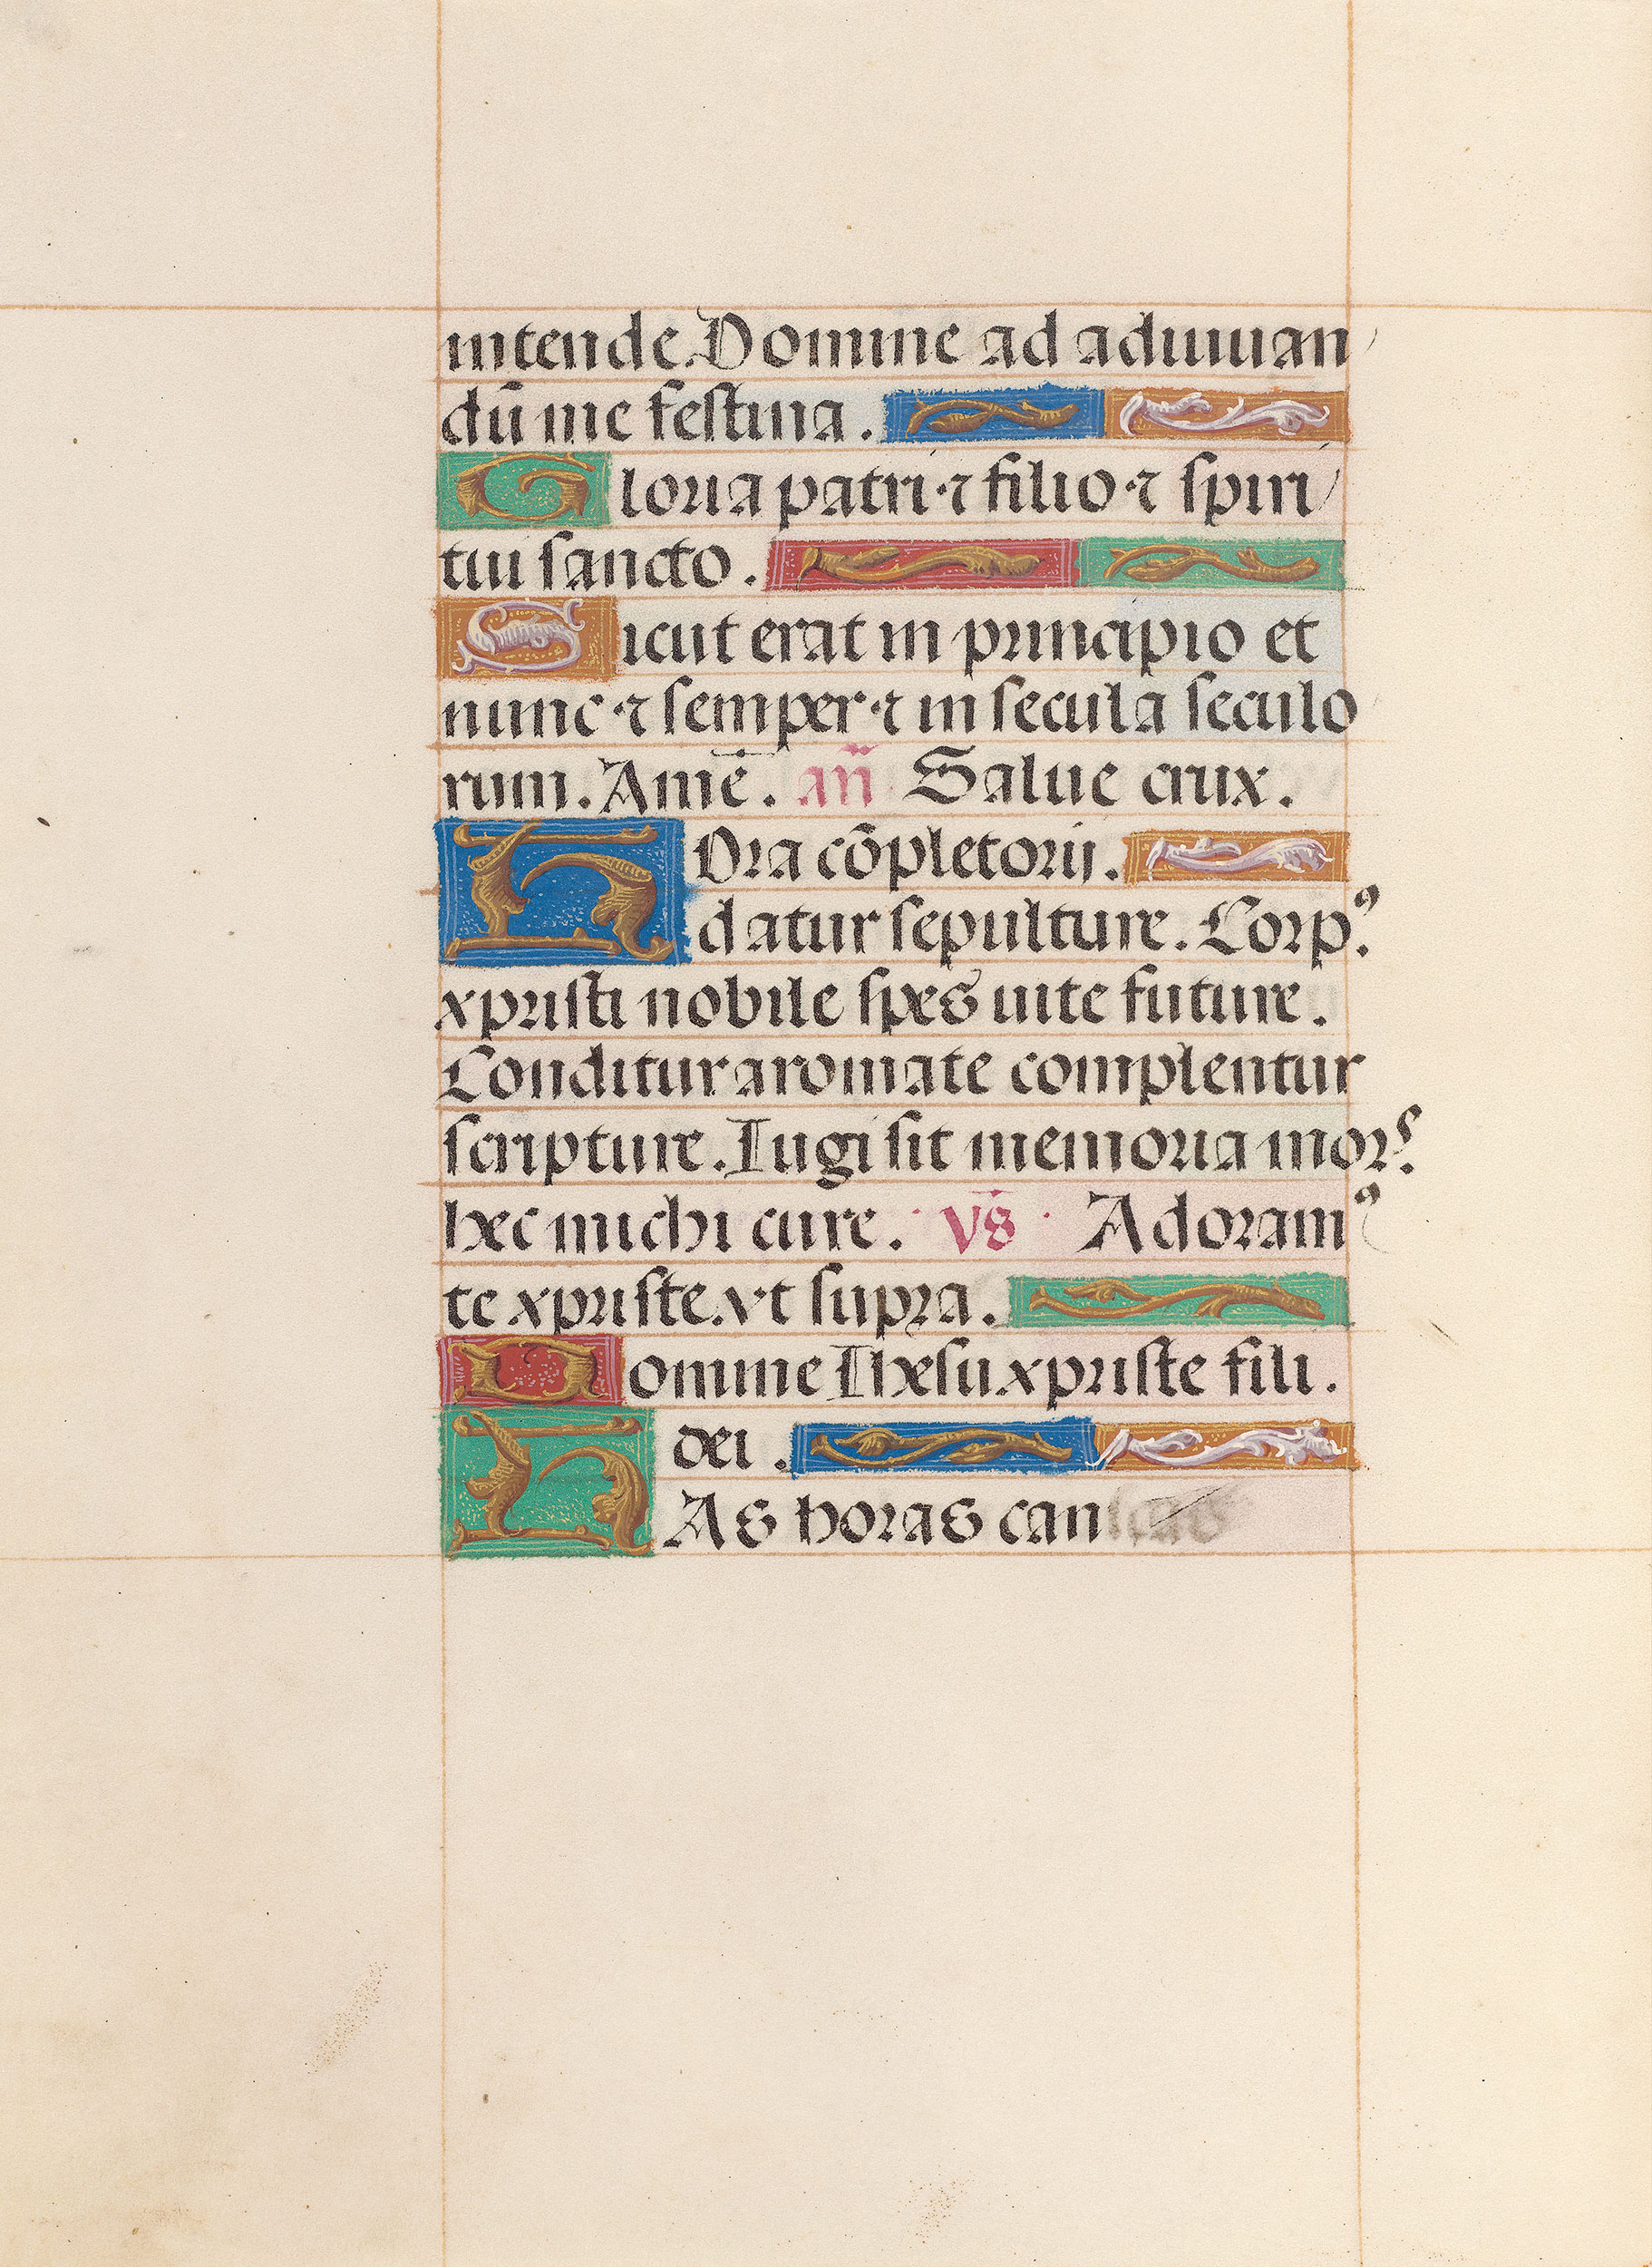 intende. Domine ad adiuuan
dū me festina.
Gloria patri · ⁊ filio · ⁊ spiri
tui sancto.
Sicut erat in principio et
nunc · ⁊ semper · ⁊ in secula seculo
rum. Amē. an̄ Salue crux.
HOra cōpletorij.
datur sepulture. Corpꝰ.
xpristi nobile spes uite future.
Conditur aromate complentur
scripture. Iugi sit memoria mors.
hec michi cure. vs̄ Adoramꝰ
te xpriste. vt supra.
Domine Ihesu xpriste fili.
dei.
HAs horas can